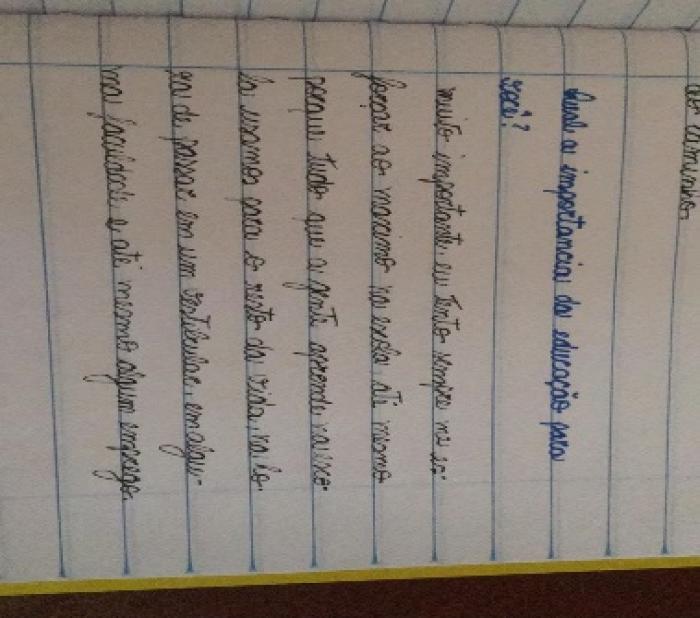 Qual a importancia da educação para
você?
muito importante, eu tento sempre me es-
forçar ao maximo na escola, até mesmo
porque tudo que a gente aprende na esco-
la usamos para o resto da vida, na ho-
ra de passar em um vestibular, em algu-
ma faculdade e até mesmo algum emprego.